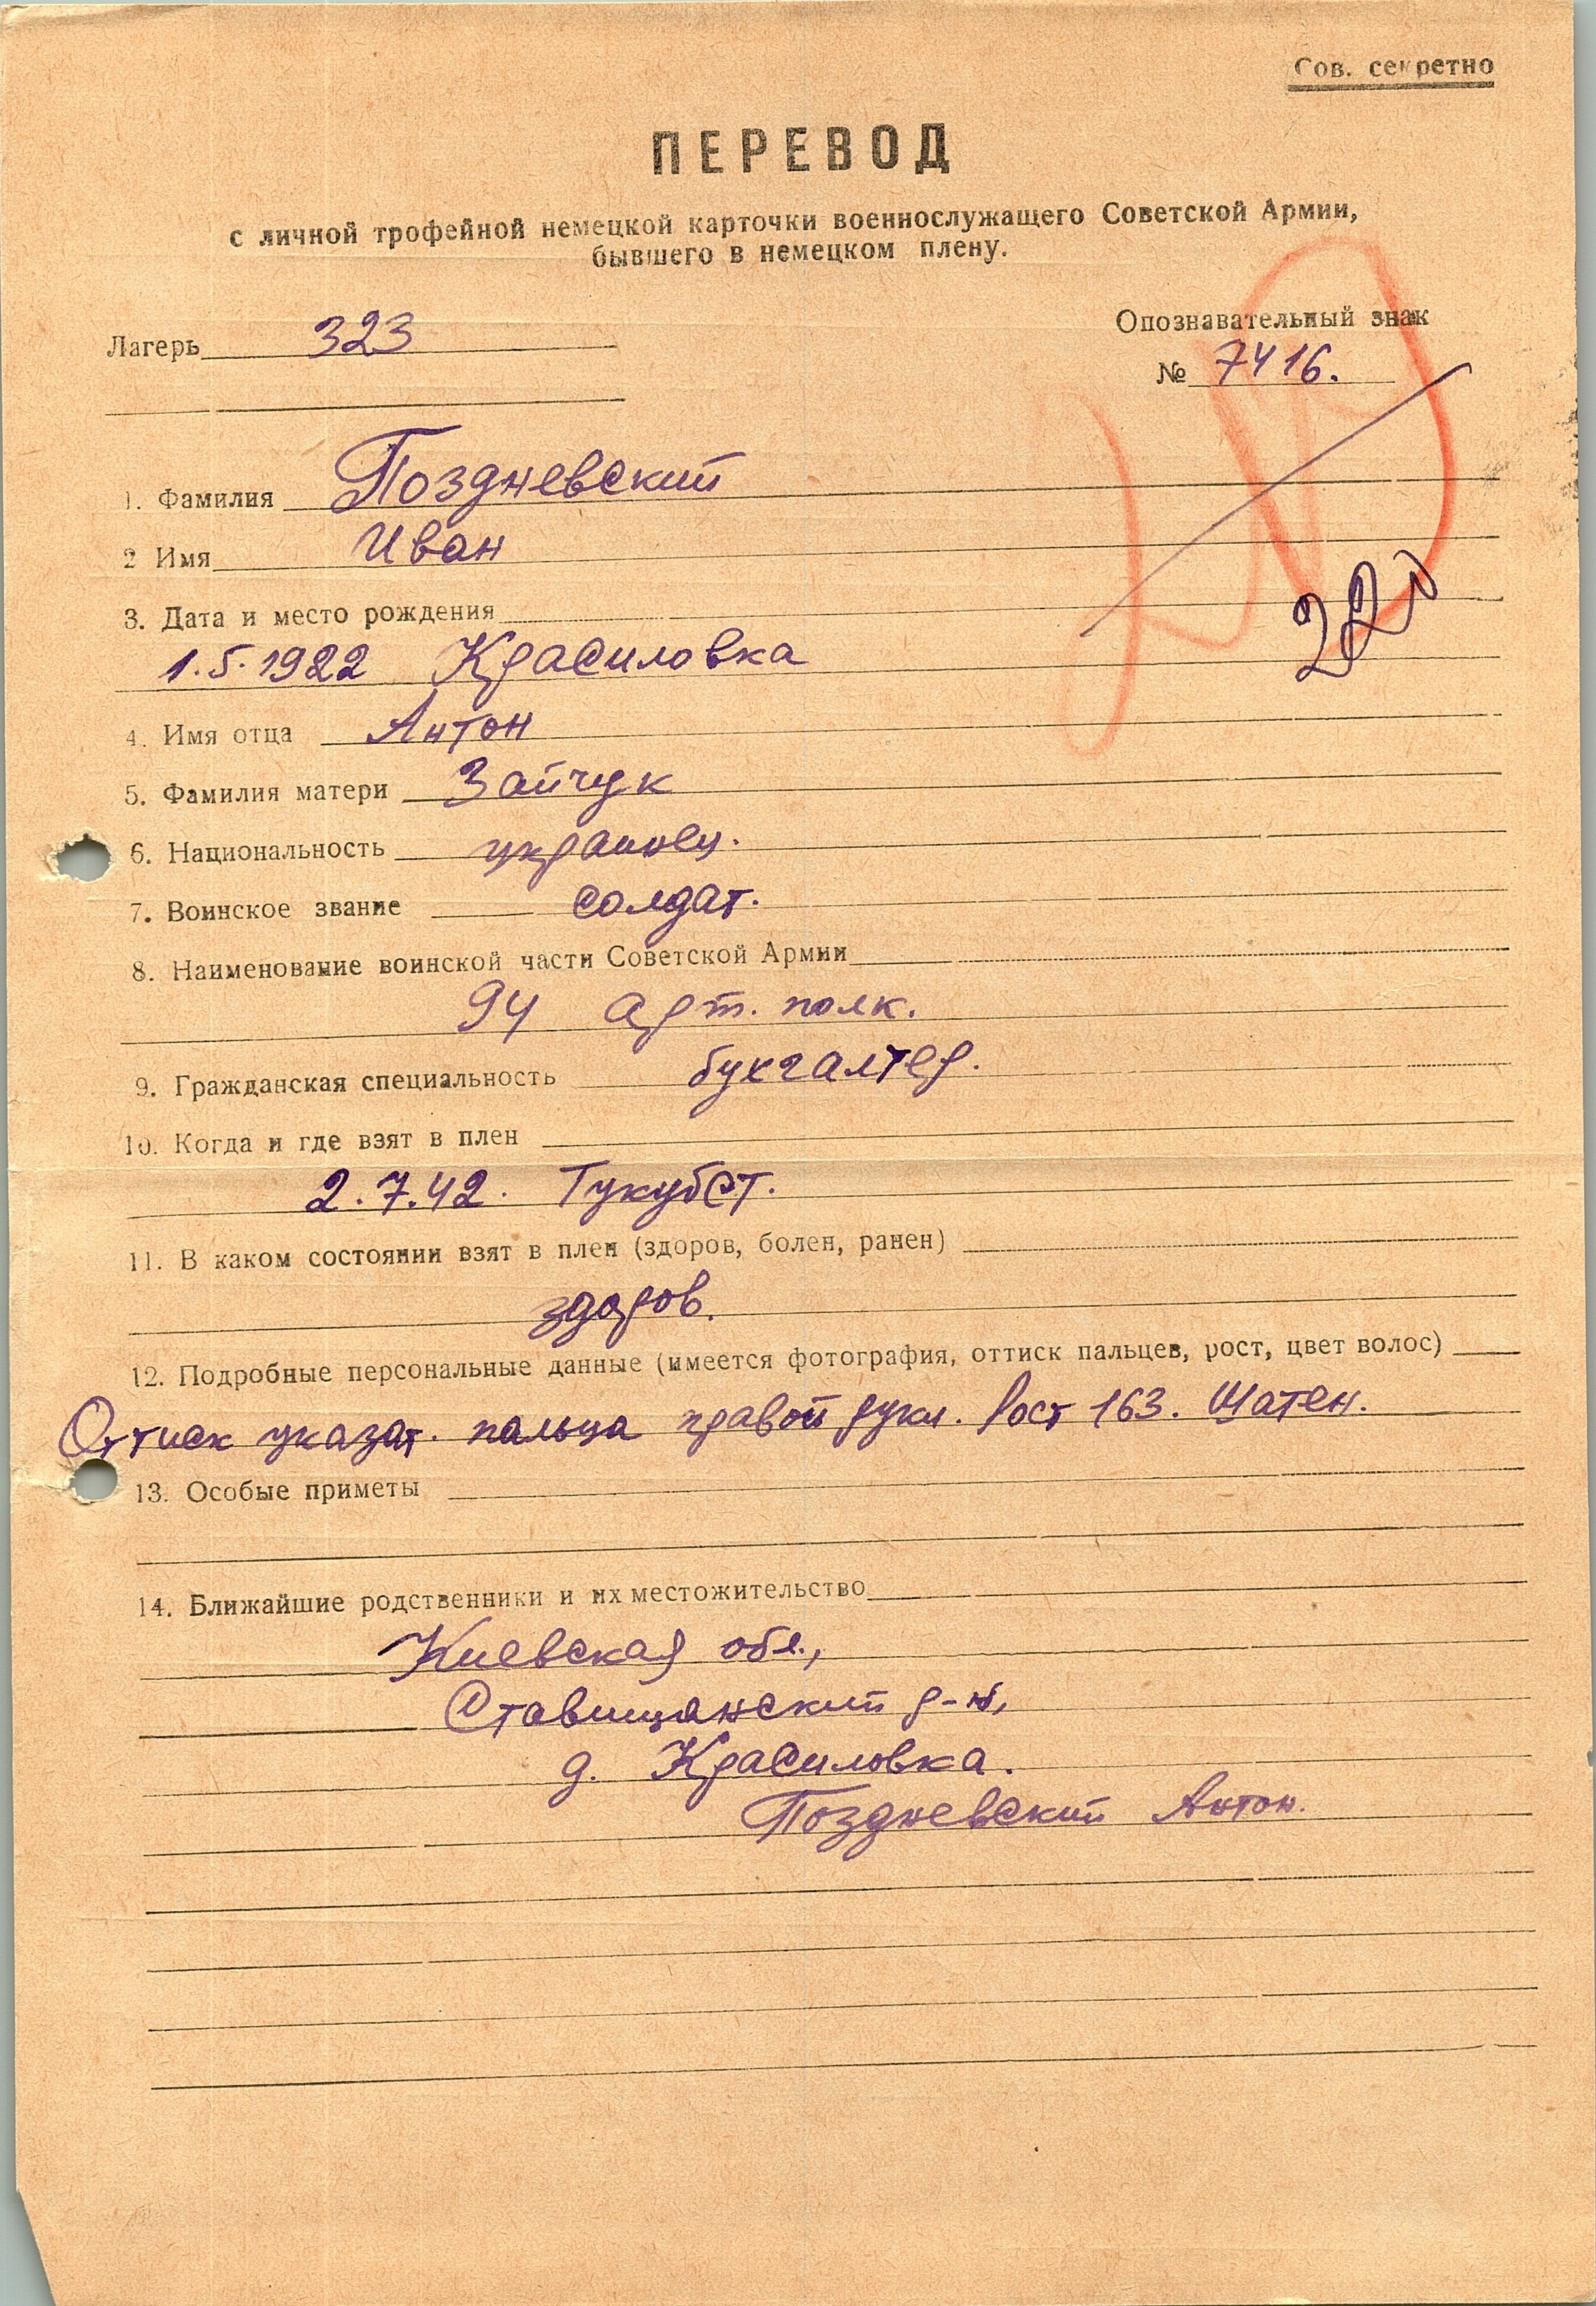 Сов. секретно
ПЕРЕВОД
с личной трофейной немецкой карточки военнослужащего Советской Армии,
бывшего в немецком плену.
Лагерь 323
Опознавательный знак
№ 7416.
1. Фамилия Поздневский
2 Имя Иван
3. Дата и место рождения
1.5.1922 Красиловка
220
4. Имя отца Антон
5. Фамилия матери Зайчук
6. Национальность украинец.
7. Воинское звание солдат.
8. Наименование воинской части Советской Армии
94 арт. полк.
9. Гражданская специальность бухгалтер.
10. Когда и где взят в плен
2.7.42. Тукубст.
11. В каком состоянии взят в плен (здоров, болен, ранен)
здоров.
12. Подробные персональные данные (имеется фотография, оттиск пальцев, рост, цвет волос)
Оттиск указат. пальца правой руки. Рост 163. Шатен.
13. Особые приметы
14. Ближайшие родственники и их местожительство
Киевская обл.,
Ставищанский р-н,
д. Красиловка.
Поздневский Антон.